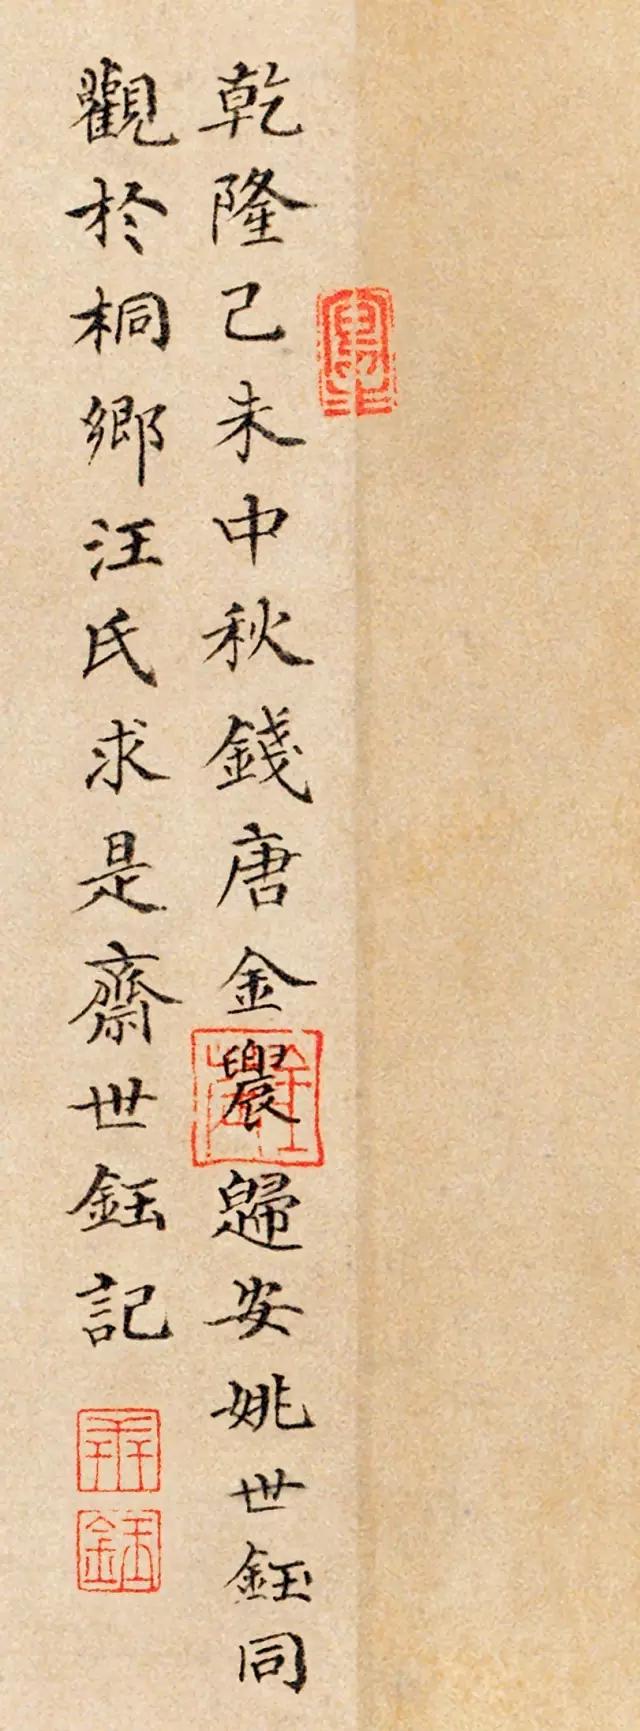 乾隆己未中秋錢唐金農歸安姚世鈺同
觀於桐鄉汪氏求是齋世鈺記